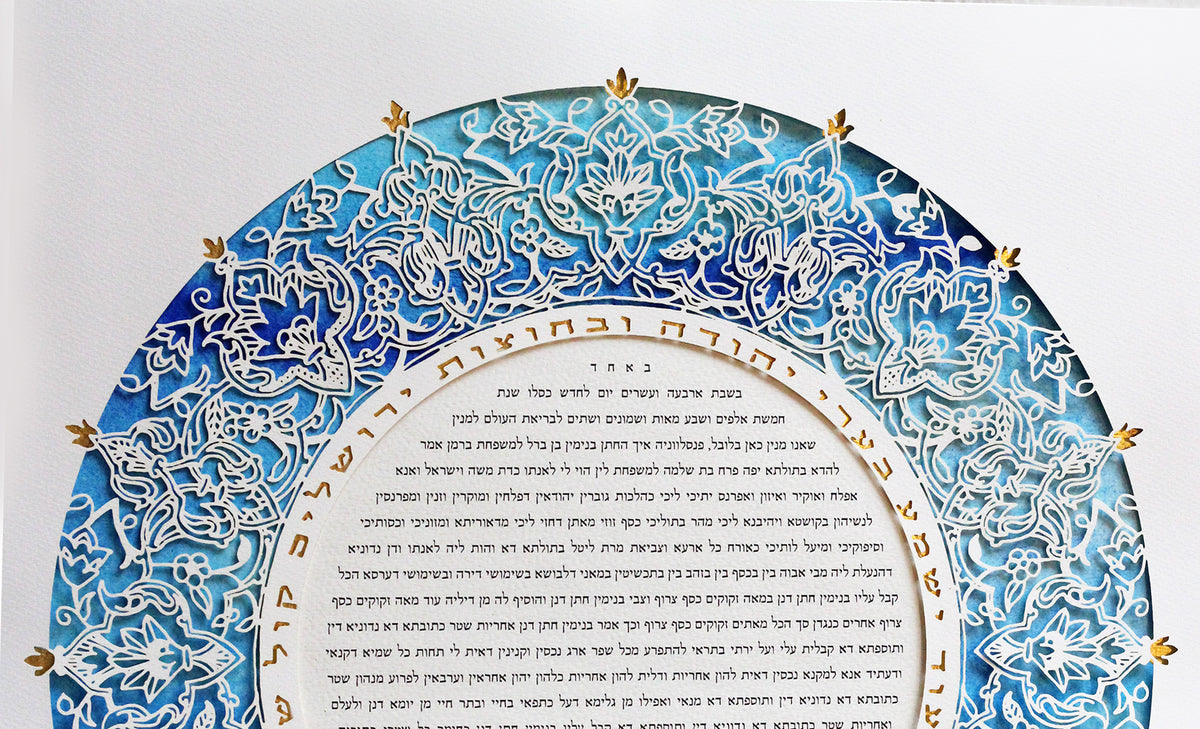 עוד ישמע בערי יהודה ובחוצות ירושלים קול ש
באחד
בשבת ארבעה ועשרים יום לחדש כסלו שנת
חמשת אלפים ושבע מאות ושמונים ושתים לבריאת העולם למנין
שאנו מנין כאן בלובל, פנסלווניה איך החתן בנימין בן ברל למשפחת ברמן אמר
להדא בתולתא יפה פרח בת שלמה למשפחת לין הוי לי לאנתו כדת משה וישראל ואנא
אפלח ואוקיר ואיזון ואפרנס יתיכי ליכי כהלכות גוברין יהודאין דפלחין ומוקרין וזנין ומפרנסין
לנשיהון בקושטא ויהיבנא ליכי מהר בתוליכי כסף זוזי מאתן דחזי ליכי מדאוריתא ומזוניכי וכסותיכי
וסיפוקיכי ומיעל לותיכי כאורח כל ארעא וצביאת מרת ליטל בתולתא דא והות ליה לאנתו ודן נדוניא
דהנעלת ליה מבי אבוה בין בכסף בין בזהב בין בתכשיטין במאני דלבושא בשימושי דירה ובשימושי דערסא הכל
קבל עליו בנימין חתן דנן במאה זקוקים כסף צרוף וצבי בנימין חתן דנן והוסיף לה מן דיליה עוד מאה זקוקים כסף
צרוף אחרים כנגדן סך הכל מאתים זקוקים כסף צרוף וכך אמר בנימין חתן דנן אחריות שטר כתובתא דא נדוניא דין
ותוספתא דא קבלית עלי ועל ירתי בתראי להתפרע מכל שפר ארג נכסין וקנינין דאית לי תחות כל שמיא דקנאי
ודעתיד אנא למקנא נכסין דאית להון אחריות ודלית להון אחריות כלהון יהון אחראין וערבאין לפרוע מנהון שטר
כתובתא דא נדוניא דין ותוספתא דא מנאי ואפילו מן גלימא דעל כתפאי בחיי ובתר חיי מן יומא דנן ולעלם
ואחריות שטר כתובתא דא נדוניא דין ותוספתא דא קבל עליו בנימין חתן דנן כחומר כל